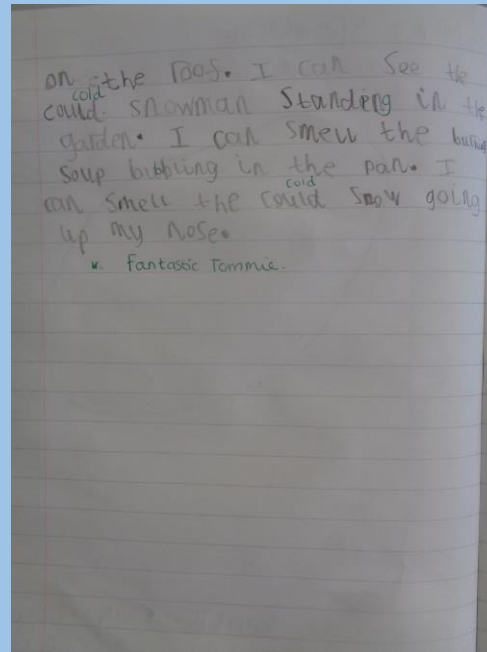 on the roof. I can see the
cold
could snowman standing in the
garden. I can smell the
soup bubbling in the pan. I
cold
can smell the could snow going
up my nose.
v. fantastic Tommie.